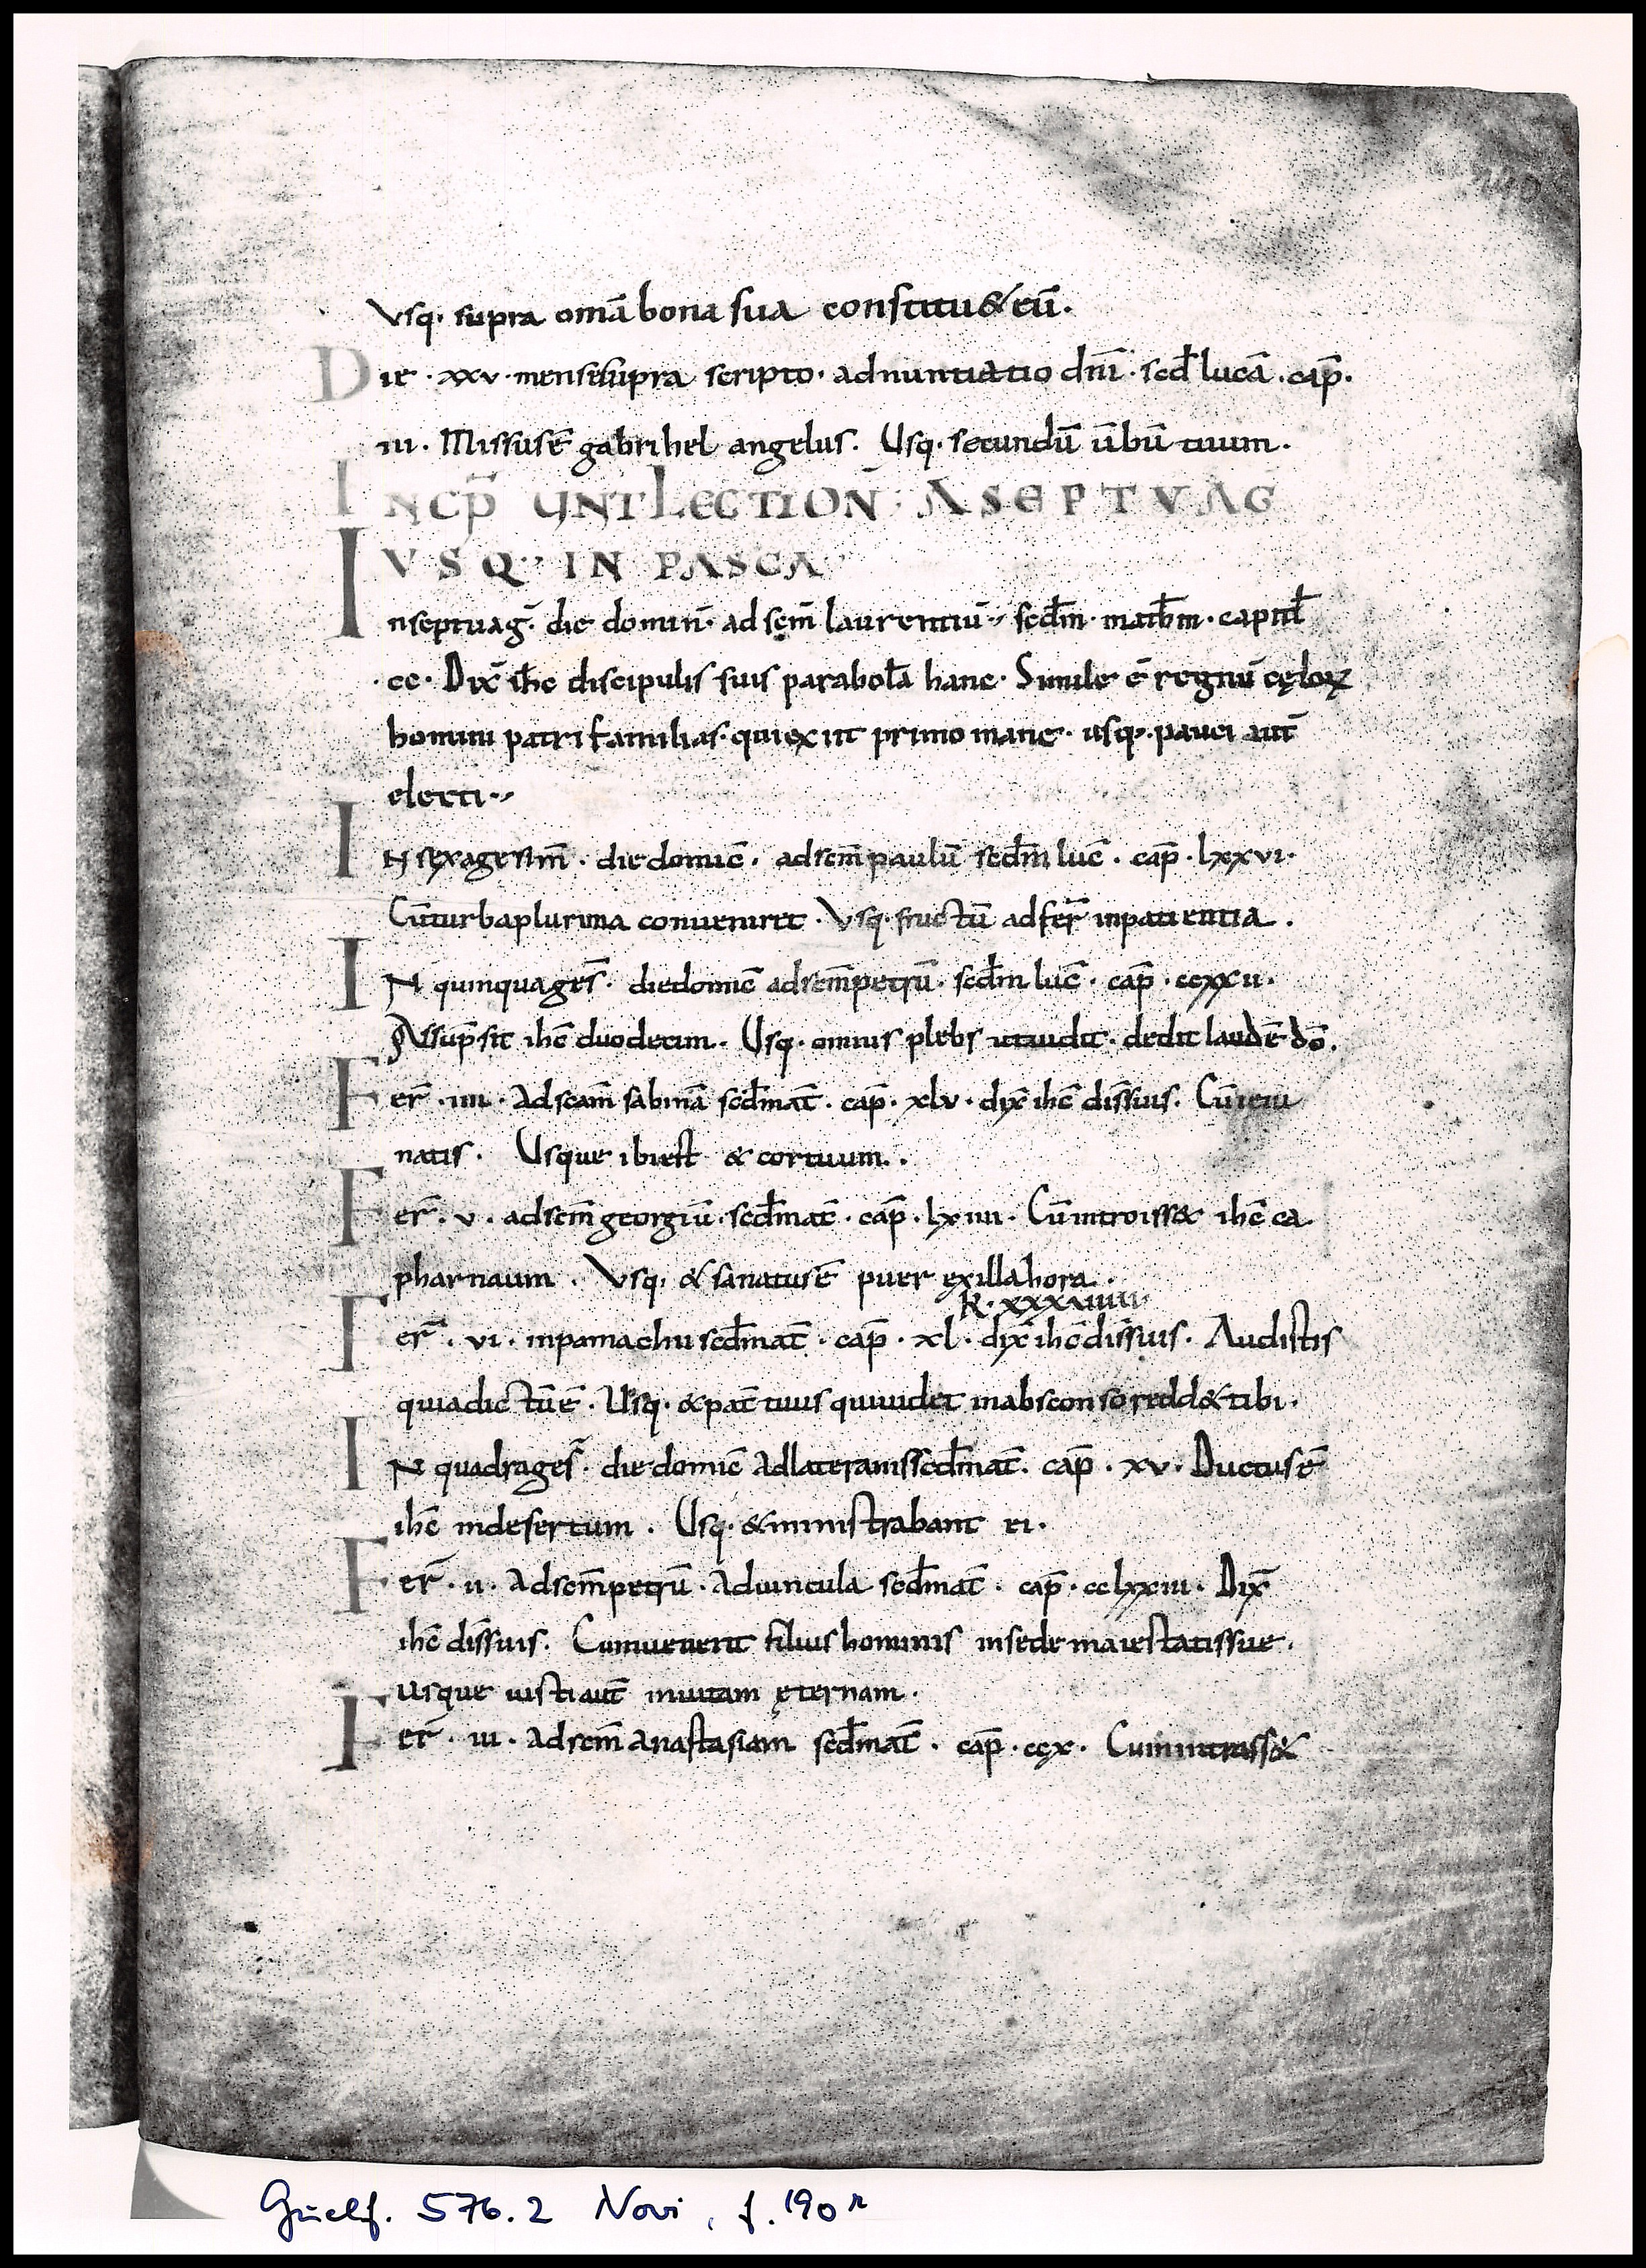 Vsq· supra om̄ā bona sua constitu&eū.
Die · xxv · mensesupra scripto· adnuntiatio dn̄i · scd̄ lucā . cap̄.
iii · Missusē gabrihel angelus. Usq· secundū ūbū tuum.
INCP̄ UNT LECTION̄ · A SEPTVAG
VSQ·· IN PASCA
Inseptuag̅· die domin̄· ad sc̄m̄ laurentiū·, scd̄m · matħm · capitł
·cc· Dix̄ ih̄c discipulis suis parabolā hanc· Simile ē regnū cęloꝝ
homini patri familias· quiexiit primo mane· usq·· pauci aut̄
electi··,
IN sexagesim̄ · die domic̄ . ad sc̄m paulū scd̄m luc̄ . cap̄ · lxxvi·
Cūturbaplurima conueniret · Vsq· fructū adfer̄ inpatientia .
IN quinquages̄· diedomic̄ adsc̄mpetrū · scd̄m luc̄ · cap̄ · ccxxii·
Assūpsit ih̄c duodecim · Usq · omnis plebs utuidit · dedit laudē dō.
Fer̄ · iiii · Ad scam̄ sabinā scd̄mat̄ . cap̄ · xlv · dix̄ ih̄c dissuis̄. Cūieiu
natis · Usque ibi est & cortuum . .
Fer̄ · v . adsc̄m georgiū · scd̄mat̄ · cap̄ · lxiiii · Cūintroiss& ih̄c ca
pharnaum . Vsq· & sanatusē puer exillahora .
R· xxxxiiiii
Fer̄ · vi · inpamachii scd̄mat̄ · cap̄ · xl · dix̄ ih̄c dissuis̄ · Audistis
quiadictūē . Usq· & pat̄ tuus quiuidet inabsconsoredd& tibi ·
IN quadrages̄· die domic̄ Adlateranisscd̄mat̄ · cap̄ · xv · Ductusē
ih̄c indesertum . Usq· & ministrabant ei ·
Fer̄ · ii · Adsc̄mpetrū · Aduincula scd̄mat̄ · cap̄ · cclxxiii · Dix̄
ih̄c dissuis̄ · Cumuenerit filius hominis insede maiestatissue ·
usque iustiaut̄ inuitam ęternam ·
Fer̄ · iii · Adsc̄m anastasiam scd̄mat̄ · cap̄ · ccx · Cumintrass&
Guelf. 576.2 Novi, f. 190r